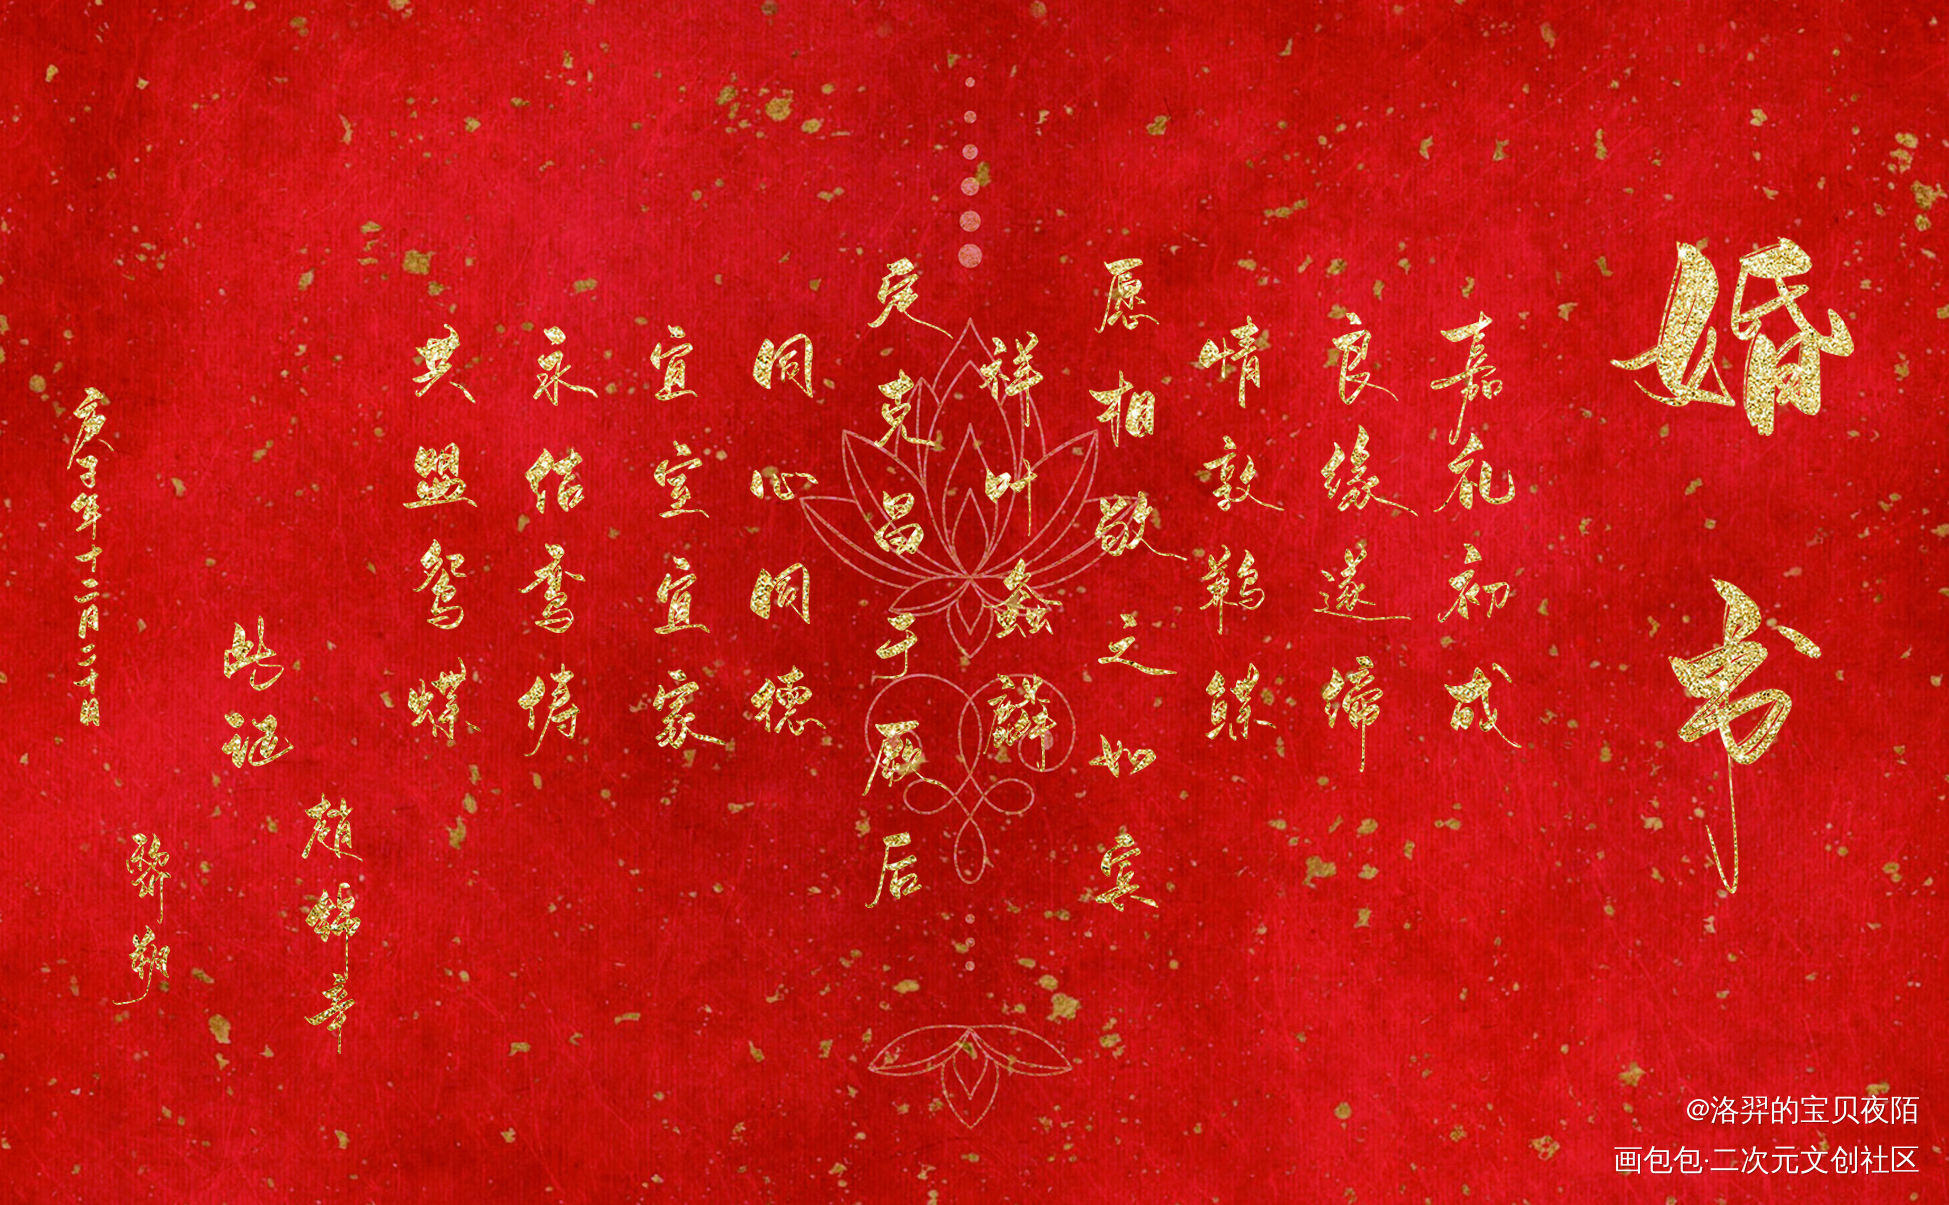 婚书
嘉礼初成
良缘遂缔
情敦鹣鲽
愿相敬之如宾
祥叶螽麟
定克昌于厥后
同心同德
宜室宜家
永结鸾俦
共盟鸳蝶
趙锦辛
此证
黎朔
庚子年十二月二十日
@洛羿的宝贝夜陌
画包包·二次元文创社区